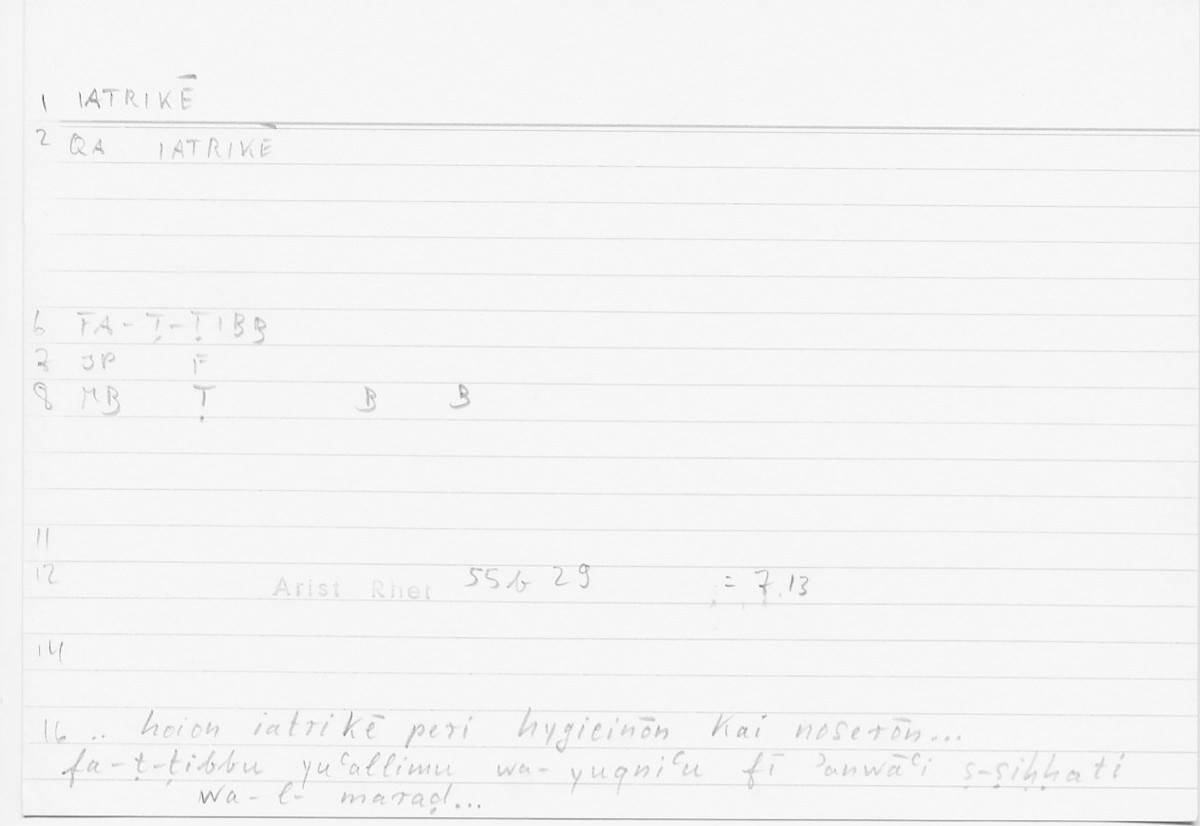 1 IATRIKĒ
2 QA IATRIKĒ
6 FA-Ṭ-ṬIBB
7 JP F
8 MB Ṭ B B
11
12 Arist Rhet 55b 29 = 7.13
14
16 .. hoion iatrikē peri hygieinōn kai noserōn...
fa-ṭ-ṭibbu yuʿallimu wa-yuqniʿu fī ʾanwāʿi ṣ-ṣiḥḥati
wa-l-maraḍ...